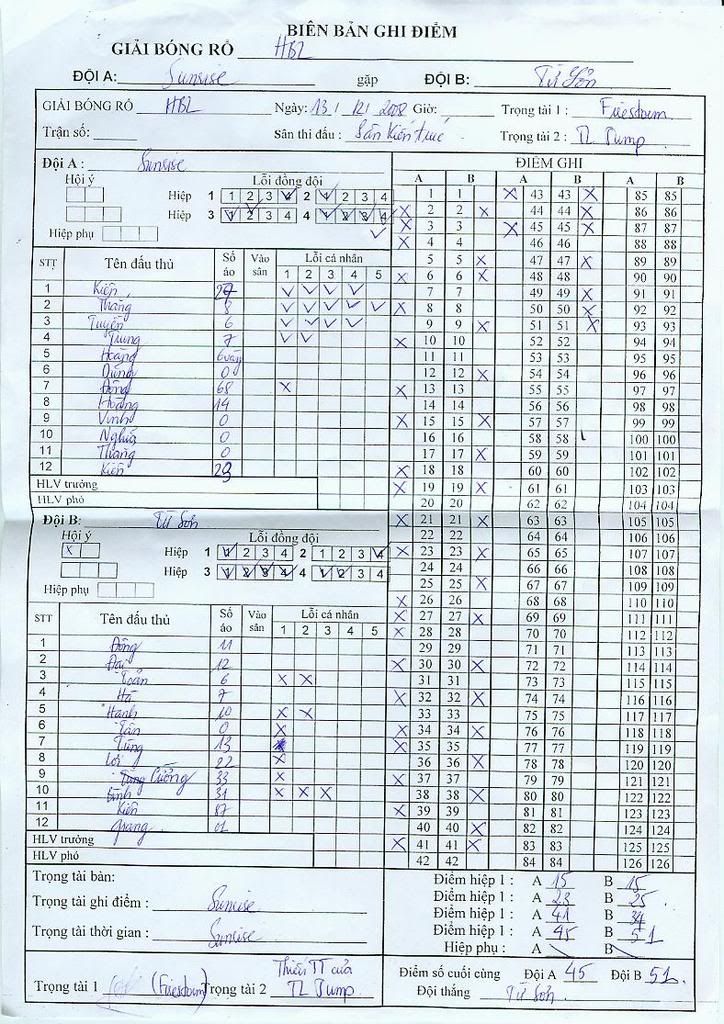 BIÊN BẢN GHI ĐIỂM
GIẢI BÓNG RỔ HBL
ĐỘI A: Sunrise gặp ĐỘI B: Từ Sơn
GIẢI BÓNG RỔ HBL Ngày: 13 / 12 / 2008 Giờ: Trọng tài 1 : Firestorm
Trận số: Sân thi đấu : Sân Kiến trúc Trọng tài 2 : TL Jump
Đội A : Sunrise ĐIỂM GHI
Hội ý Lỗi đồng đội A B A B A B
Hiệp 1 1 2 3 4 2 1 2 3 4
Hiệp 3 1 2 3 4 4 1 2 3 4
Hiệp phụ
STT Tên đấu thủ Số áo Vào sân Lỗi cá nhân
1 2 3 4 5
1 Kiên
2 Thắng 8
3 Tuyên 6
4 Trung 7
5 Hoàng
6 Dũng 0
7 Đông 68
8 Hoàng 14
9 Vinh 0
10 Nghĩa 0
11 Thắng 0
12 Kiên 23
HLV trưởng
HLV phó
Đội B: Từ Sơn
Hội ý Lỗi đồng đội
X Hiệp 1 1 2 3 4 2 1 2 3 4
Hiệp 3 1 2 3 4 4 1 2 3 4
Hiệp phụ
STT Tên đấu thủ Số áo Vào sân Lỗi cá nhân
1 2 3 4 5
1 Đông 11
2 Đại 12
3 Toản 6 X X
4 Hà 7
5 Hạnh 10 X X
6 Tân 0 X
7 Tùng 13
8 Lợi 22 X
9 Cường 33 X
10 Bình 31 X X X
11 Kiên 87
12 Giang 01
HLV trưởng
HLV phó
1 1 X 43 43 X 85 85
X 2 2 X 44 44 X 86 86
X 3 3 X 45 45 X 87 87
X 4 4 46 46 88 88
5 5 X 47 47 X 89 89
X 6 6 X 48 48 90 90
7 7 49 49 X 91 91
X 8 8 50 50 X 92 92
9 9 X 51 51 X 93 93
X 10 10 52 52 94 94
11 11 53 53 95 95
12 12 X 54 54 96 96
X 13 13 55 55 97 97
14 14 56 56 98 98
X 15 15 X 57 57 99 99
16 16 58 58 100 100
17 17 X 59 59 101 101
X 18 18 60 60 102 102
X 19 19 X 61 61 103 103
20 20 62 62 104 104
X 21 21 X 63 63 105 105
22 22 64 64 106 106
X 23 23 X 65 65 107 107
24 24 66 66 108 108
25 25 X 67 67 109 109
X 26 26 68 68 110 110
X 27 27 X 69 69 111 111
X 28 28 70 70 112 112
29 29 71 71 113 113
X 30 30 X 72 72 114 114
31 31 73 73 115 115
X 32 32 X 74 74 116 116
33 33 75 75 117 117
X 34 34 X 76 76 118 118
X 35 35 77 77 119 119
36 36 X 78 78 120 120
X 37 37 79 79 121 121
38 38 X 80 80 122 122
X 39 39 81 81 123 123
40 40 X 82 82 124 124
X 41 41 X 83 83 125 125
42 42 84 84 126 126
Trọng tài bàn:
Trọng tài ghi điểm : Sunrise
Trọng tài thời gian : Sunrise
Điểm hiệp 1 : A 15 B 15
Điểm hiệp 1 : A 23 B 25
Điểm hiệp 1 : A 41 B 34
Điểm hiệp 1 : A 45 B 51
Hiệp phụ : A B
Trọng tài 1 (Firestorm) Trọng tài 2 Thiếu TT của TL Jump
Điểm số cuối cùng Đội A 45 Đội B 51
Đội thắng : Từ Sơn